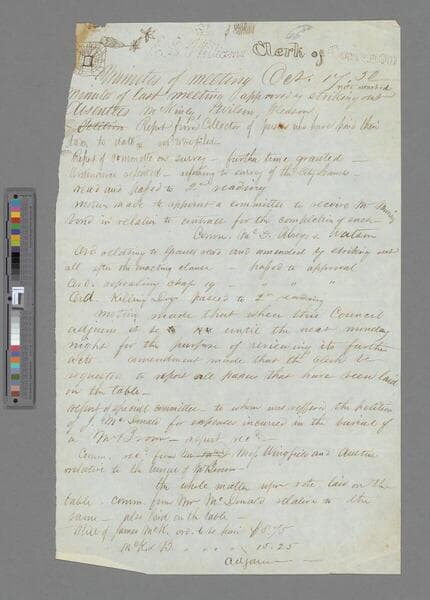 Williams Clerk of
Minutes of meeting Oct. 17, 50
Minutes of last meeting approved by striking out
Absentees McKinly, Wilson, Gleason
Petition Report from Collector of persons who have paid their
taxes to date not
Report of committee on survey - further time granted -
Ordinance reported - relating to survey of the City lands -
read and passed to 2nd reading
motion made to appoint a committee to receive Mr
bond in relation to contract for the completion of such
Comm. Mc D. & Watson
Ord relating to read and amended by striking out
all after the enacting clause - passed to approval
Ord. repealing chap 19 - " " "
Ord. Killing Dogs passed to 2nd reading
Motion made that when this Council
adjourn it so until the next monday
night for the purpose of reviewing its further
acts amendment made that the clerk be
requested to report all papers that have been laid
on the table -
Report of special committee - to whom was reffered the petition
of J. McDonald for expenses incurred in the burial of
a Mr Broom - report rec'd -
Comm. rec'd from Wingfield and Austin
relative to the of Mr Broom -
the whole matter upon vote laid on the
table - comm. from Mr McDonald relative to the
same - also laid on the table -
Bill of James McK. ord. to be paid $8.75
McK & B. " " " 15.25
Adjourn